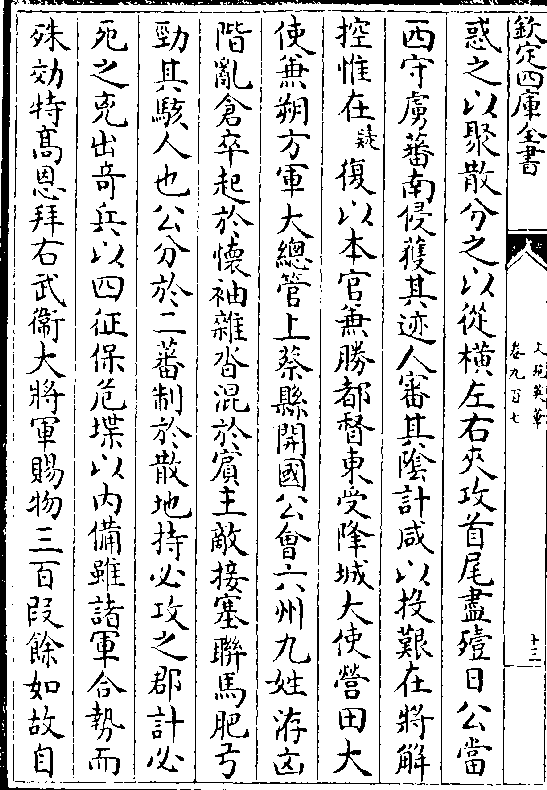 欽定四庫全書
文苑英華
卷九百七
十三
惑之以聚散分之以從橫左右夾攻首尾盡殪日公當
西守虜蕃南侵獲其迹人審其陰計咸以投艱在將解
控惟在疑復以本官兼勝都督東受降城大使營田大
使兼朔方軍大總管上蔡縣開國公會六州九姓洊凶
階亂倉卒起於懷袖雜沓混於賓主敵接塞聯馬肥弓
勁其駭人也公分於二蕃制於散地持必攻之郡計必
死之兇出奇兵以四征保危堞以內備雖諸軍合勢而
殊効特髙恩拜右武衞大將軍賜物三百段餘如故自